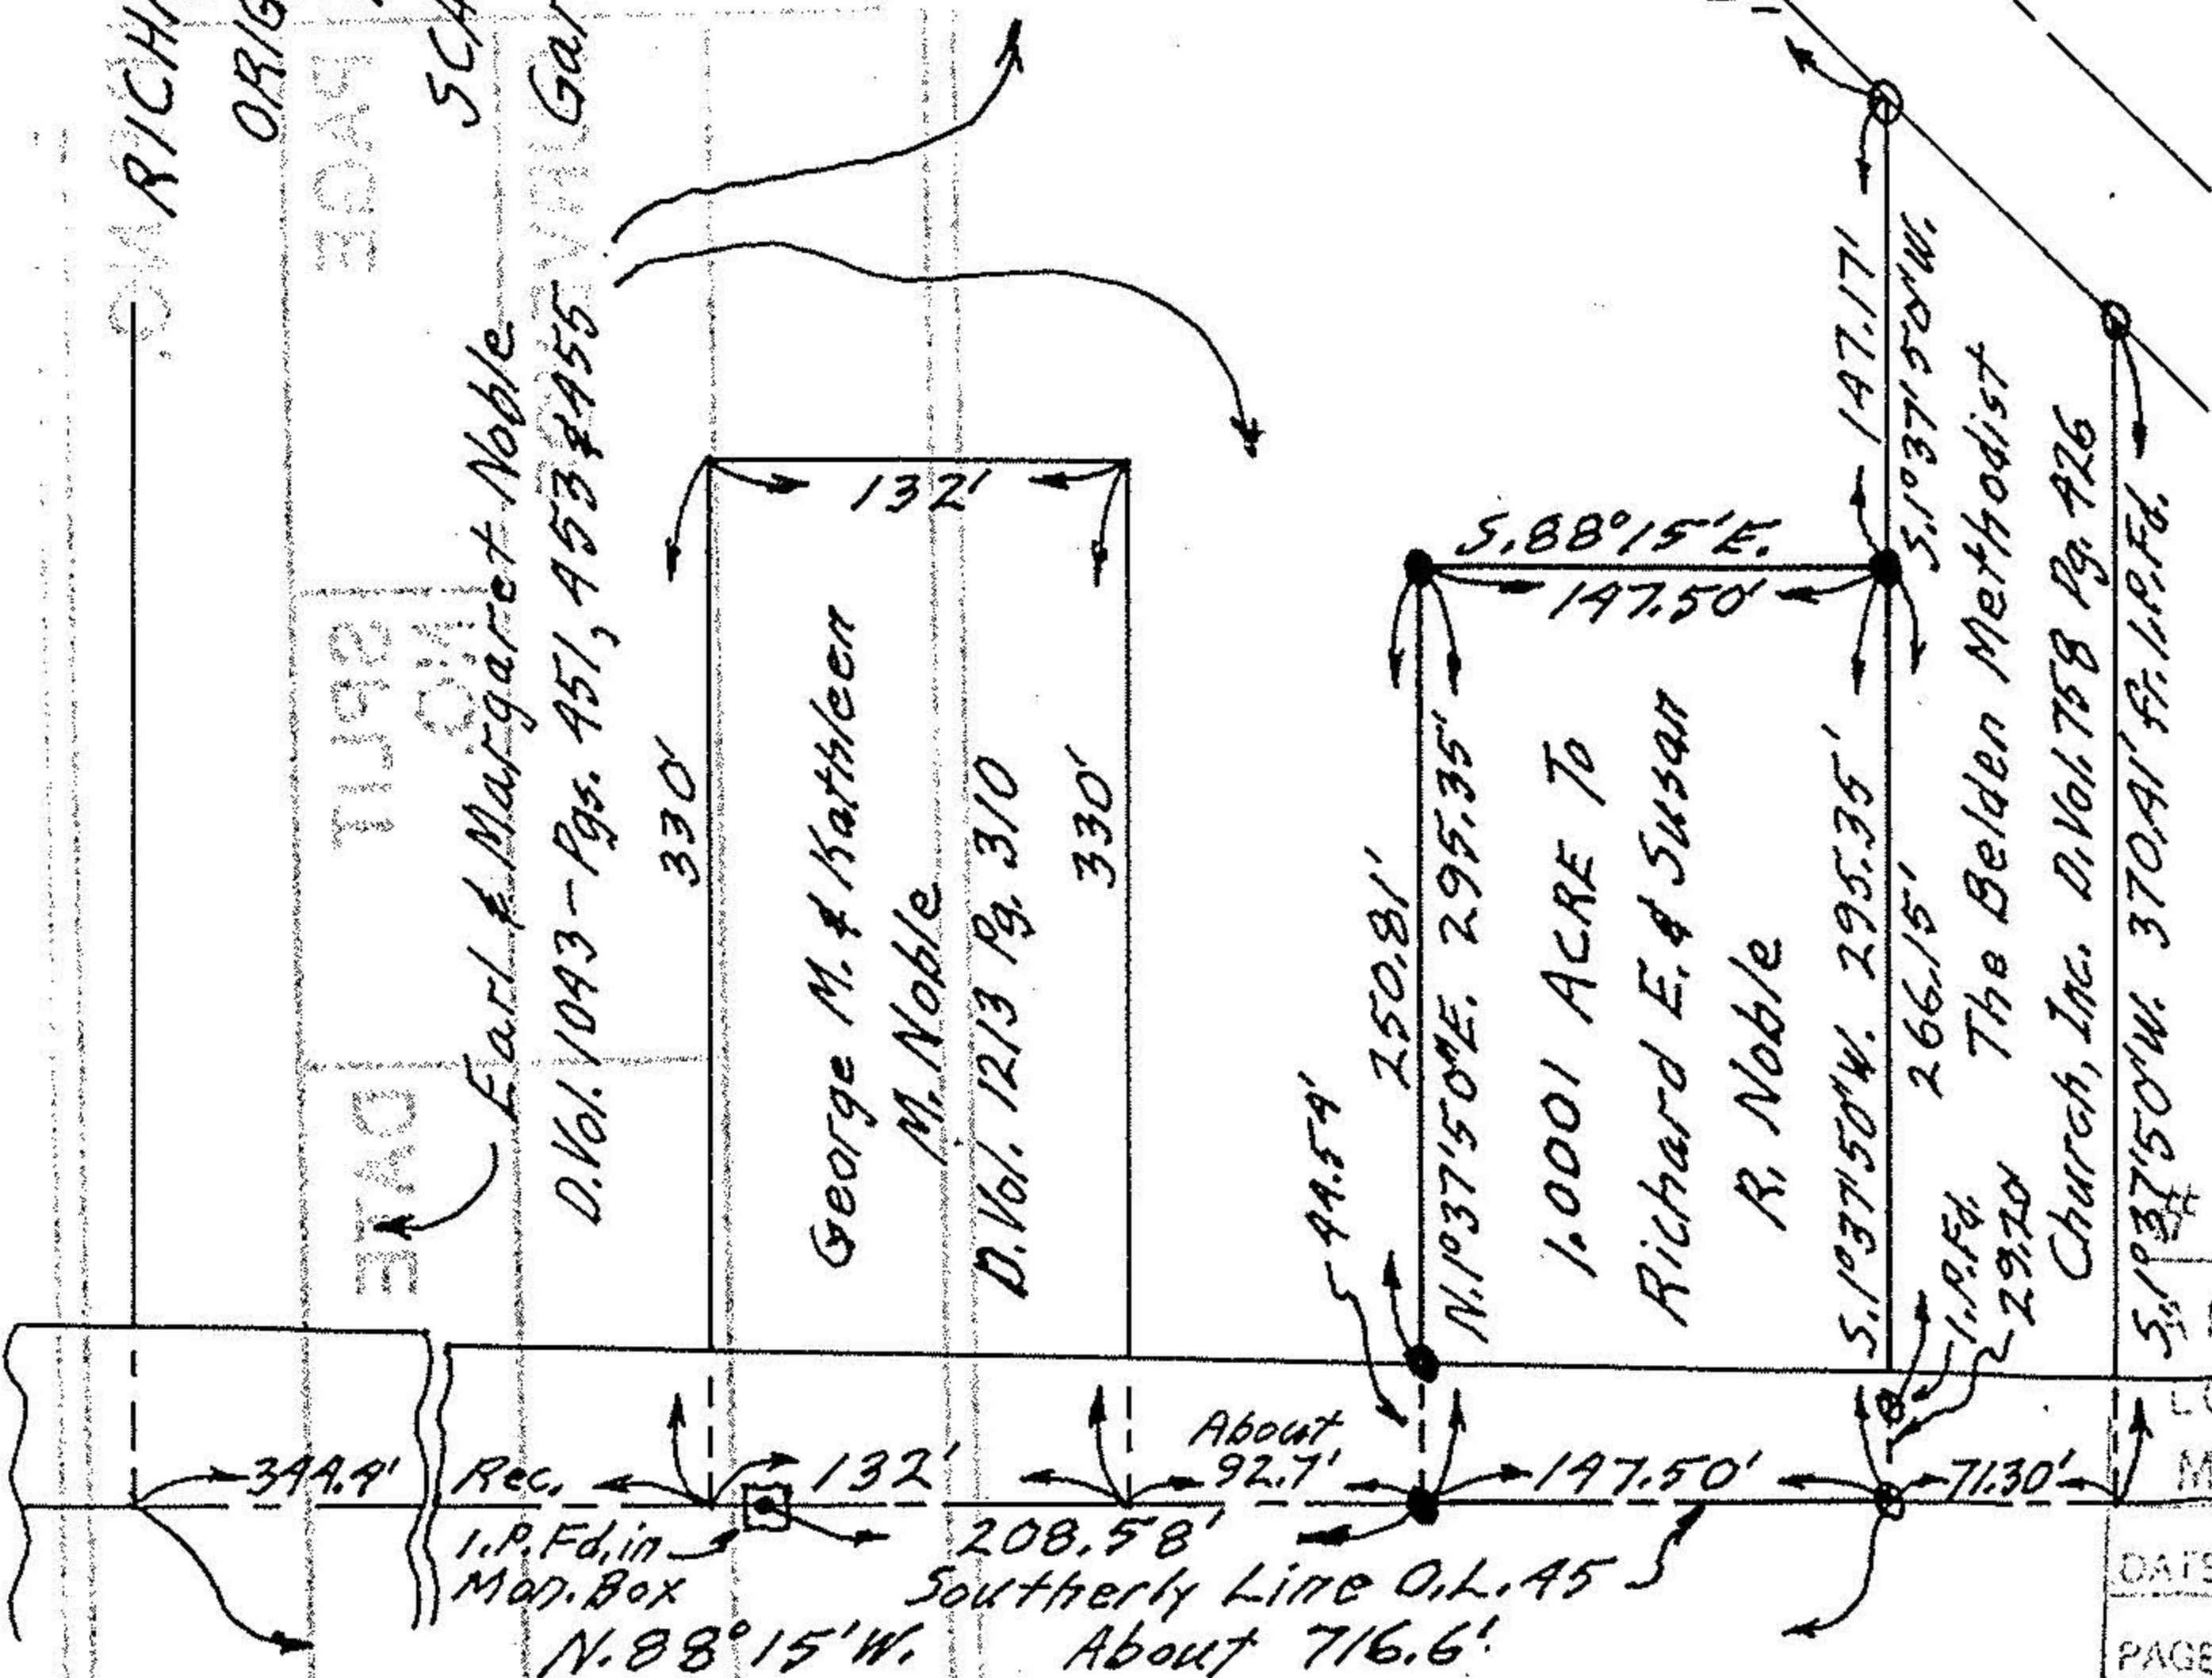 RICH
ORIG
SCA
Gar
PAGE
SPLIT
NO.
DATE
Earl & Margaret Noble
D.Vol. 1043-Pgs. 451, 453 & 455
330'
132'
George M. & Kathleen
M. Noble
D.Vol. 1213 Pg. 310
330'
S.88°15'E.
147.50'
44.54'
250.81'
N.1°37'50"E. 295.35'
1.0001 ACRE To
Richard E. & Susan
R. Noble
S.1°37'50"W. 295.35'
266.15'
147.17'
S.1°37'50"W.
I.P.Fd.
29.20'
The Belden Methodist
Church, Inc. D.Vol. 758 Pg. 426
S.1°37'50"W. 370.41' fr. I.P.Fd.
344.4' Rec.
132'
About
92.7'
147.50'
71.30'
I.P.Fd. in
Mon. Box
208.58'
Southerly Line O.L. 45
N.88°15'W. About 716.6'
PAGE